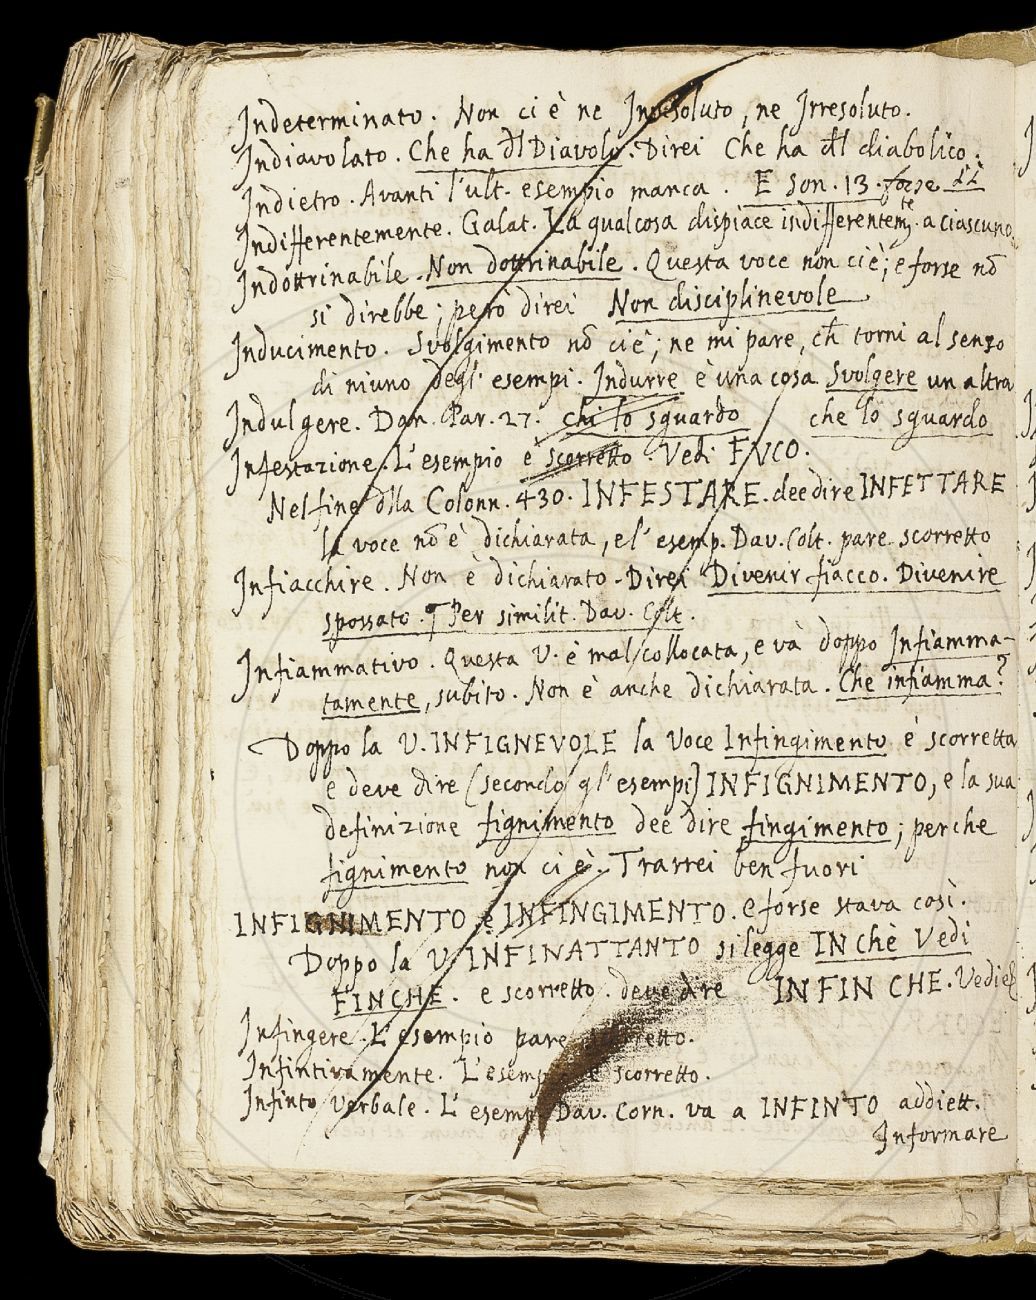 Indeterminato. Non ci è ne Inresoluto, ne Irresoluto.
Indiavolato. Che ha dl Diavolo. Direi Che ha dl diabolico.
Indietro. Avanti l'ult. esempio manca. E son. 13. forse
Indifferentemente. Galat. La qualcosa dispiace indifferentemte. a ciascuno.
Indottrinabile. Non dottrinabile. Questa voce non ci è; e forse nō
si direbbe; però direi Non disciplinevole
Inducimento. Svolgimento nō ci è; ne mi pare, ch̄ torni al senso
di niuno degl' esempi. Indurre è una cosa Svolgere un altra
Indulgere. Dan. Par. 27. chi lo sguardo che lo sguardo
Infestazione. L'esempio è scorretto. Vedi FUCO.
Nel fine dlla Colonn. 430. INFESTARE. dee dire INFETTARE
la voce nō è dichiarata, e l' esemp. Dav. Colt. pare scorretto
Infiacchire. Non è dichiarato. Direi Divenir fiacco. Divenire
spossato. ¶ Per similit. Dav. Colt.
Infiammativo. Questa V. è mal collocata, e và doppo Infiamma-
tamente, subito. Non è anche dichiarata. Che infiamma?
Doppo la V. INFIGNEVOLE la Voce Infingimento è scorretta
e deve dire (secondo gl' esempi) INFIGNIMENTO, e la sua
definizione fignimento dee dire fingimento; perche
fignimento non ci è. Trarrei ben fuori
INFIGNIMENTO e INFINGIMENTO. e forse stava così.
Doppo la V. INFINATTANTO si legge IN Chè Vedi
FINCHE. e scorretto. deve dire INFIN CHE. Vedi &
Infingere. L'esempio pare scorretto.
Infintivamente. L'esempio è scorretto.
Infinto verbale. L' esemp. Dav. Corn. va a INFINTO addiett.
Informare